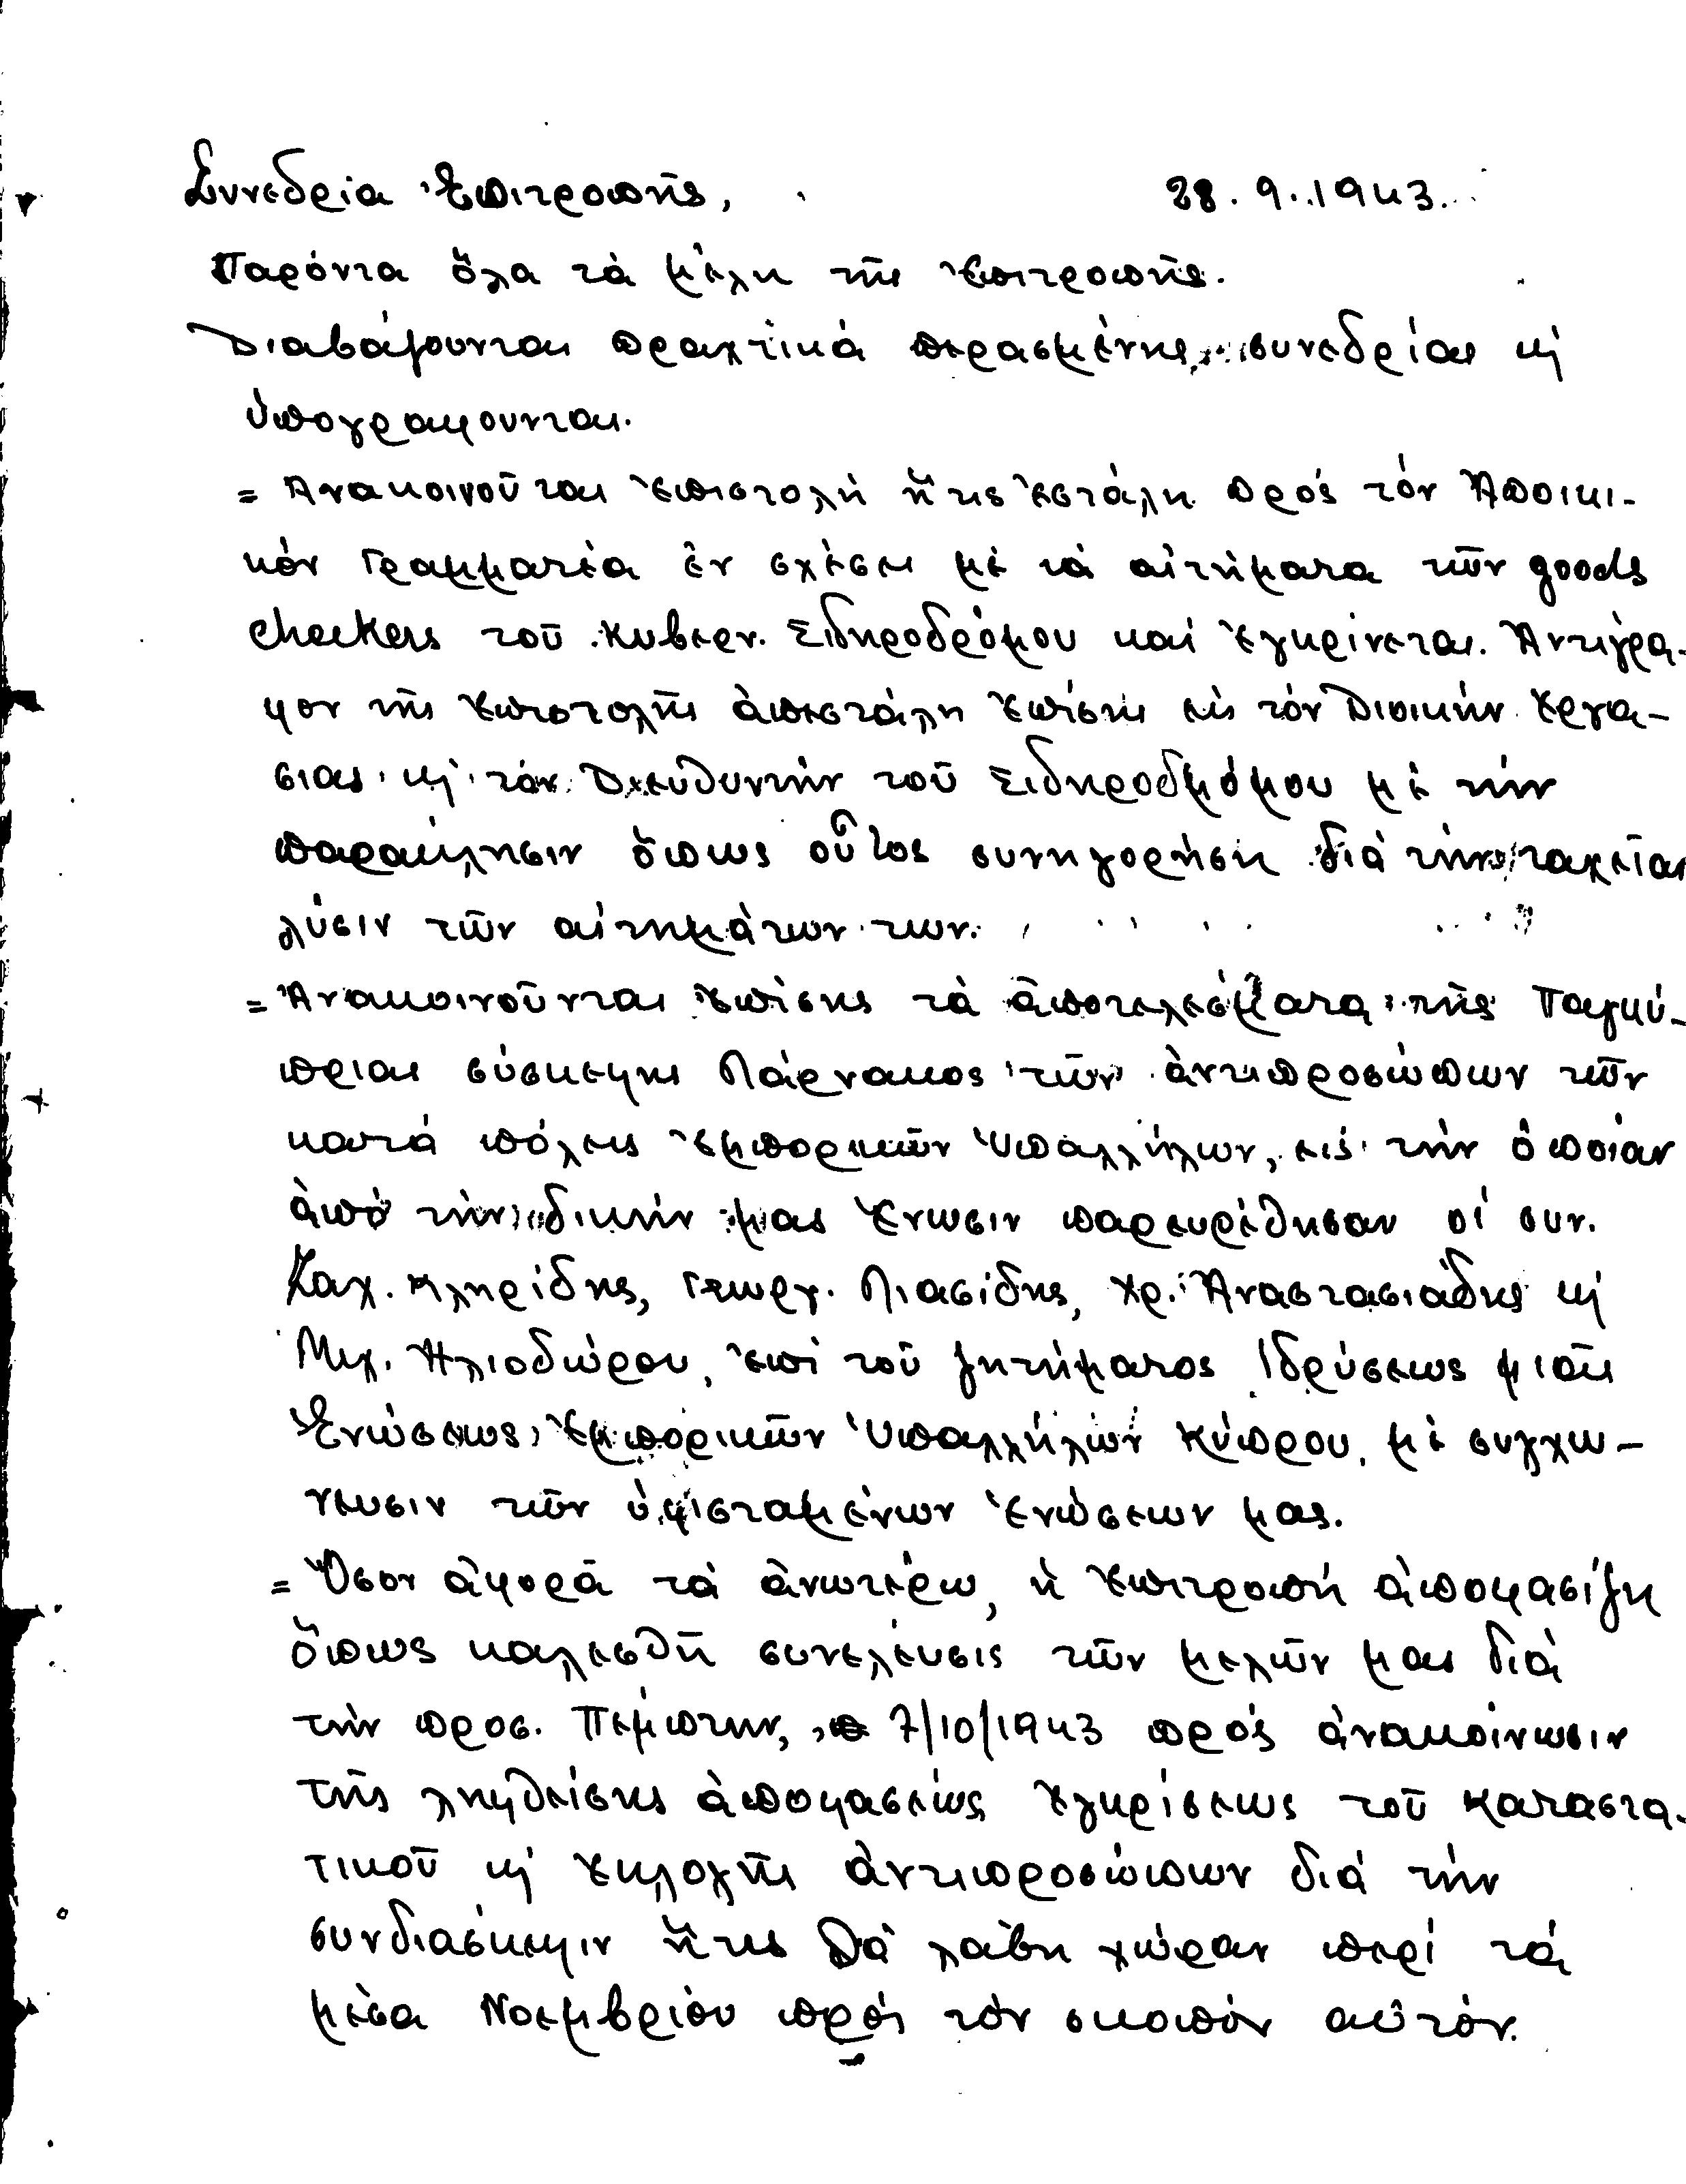 Συνεδρία Ἐπιτροπῆς, 28.9.1943.
Παρόντα ὅλα τὰ μέλη τῆς ἐπιτροπῆς.
Διαβάζουνται πραχτικά περασμένης συνεδρίας κ
ὑπογραφουνται.
= Ἀνακοινοῦται ἐπιστολή ἥτις ἐστάλη πρός τόν Ἀποικι-
κόν Γραμματέα ἐν σχέσει μέ τά αἰτήματα τῶν goods
checkers τοῦ Κυβερν. Σιδηροδρόμου καί ἐγκρίνεται. Ἀντίγρα-
φον τῆς ἐπιστολῆς ἀπεστάλη ἐπίσης εἰς τόν Διοικήν Ἐργα-
σιας κ τόν Διευθυντήν τοῦ Σιδηροδμόμου μέ τήν
παράκλησιν ὅπως οὗτος συνηγορήση διά τήν ταχεῖαν
λύσιν τῶν αἰτημάτων των.
= Ἀνακοινοῦνται ἐπίσης τὰ ἀποτελεσματα τῆς Παγκύ-
πριας σύσκεψης Λάρνακος τῶν ἀντιπροσώπων τῶν
κατά πόλεις Ἐμπορικῶν Ὑπαλλήλων, εἰς τήν ὁποίαν
ἀπό τήν δικήν μας Ἕνωσιν παρευρέθησαν οἱ συν.
Ζαχ. Κληρίδης, Γεωργ. Λιασίδης, Χρ. Ἀναστασιάδης κ
Μιχ. Ἡλιοδώρου, ἐπί τοῦ ζητήματος Ἱδρύσεως μιᾶς
Ἑνώσεως Ἐμπορικῶν Ὑπαλλήλων Κύπρου, μέ συγχω-
νευσιν τῶν ὑφισταμένων Ἑνώσεων μας.
= Ὅσον ἀφορᾶ τά ἀνωτέρω, ἡ Ἐπιτροπή ἀποφασίζη
ὅπως καλεσθῆ συνελέυσις τῶν μελῶν μας διά
τήν προσ. Πέμπτην, 7/10/1943 πρός ἀνακοίνωσιν
τῆς ληφθείσης ἀποφασεώς ἐγκρίσεως τοῦ Καταστα-
τικοῦ κ ἐκλογῆς ἀντιπροσώπων διά τήν
συνδιάσκεψιν ἥτις θά λάβη χώραν περί τά
μέσα Νοεμβρίου πρός τόν σκοπόν αὐτόν.